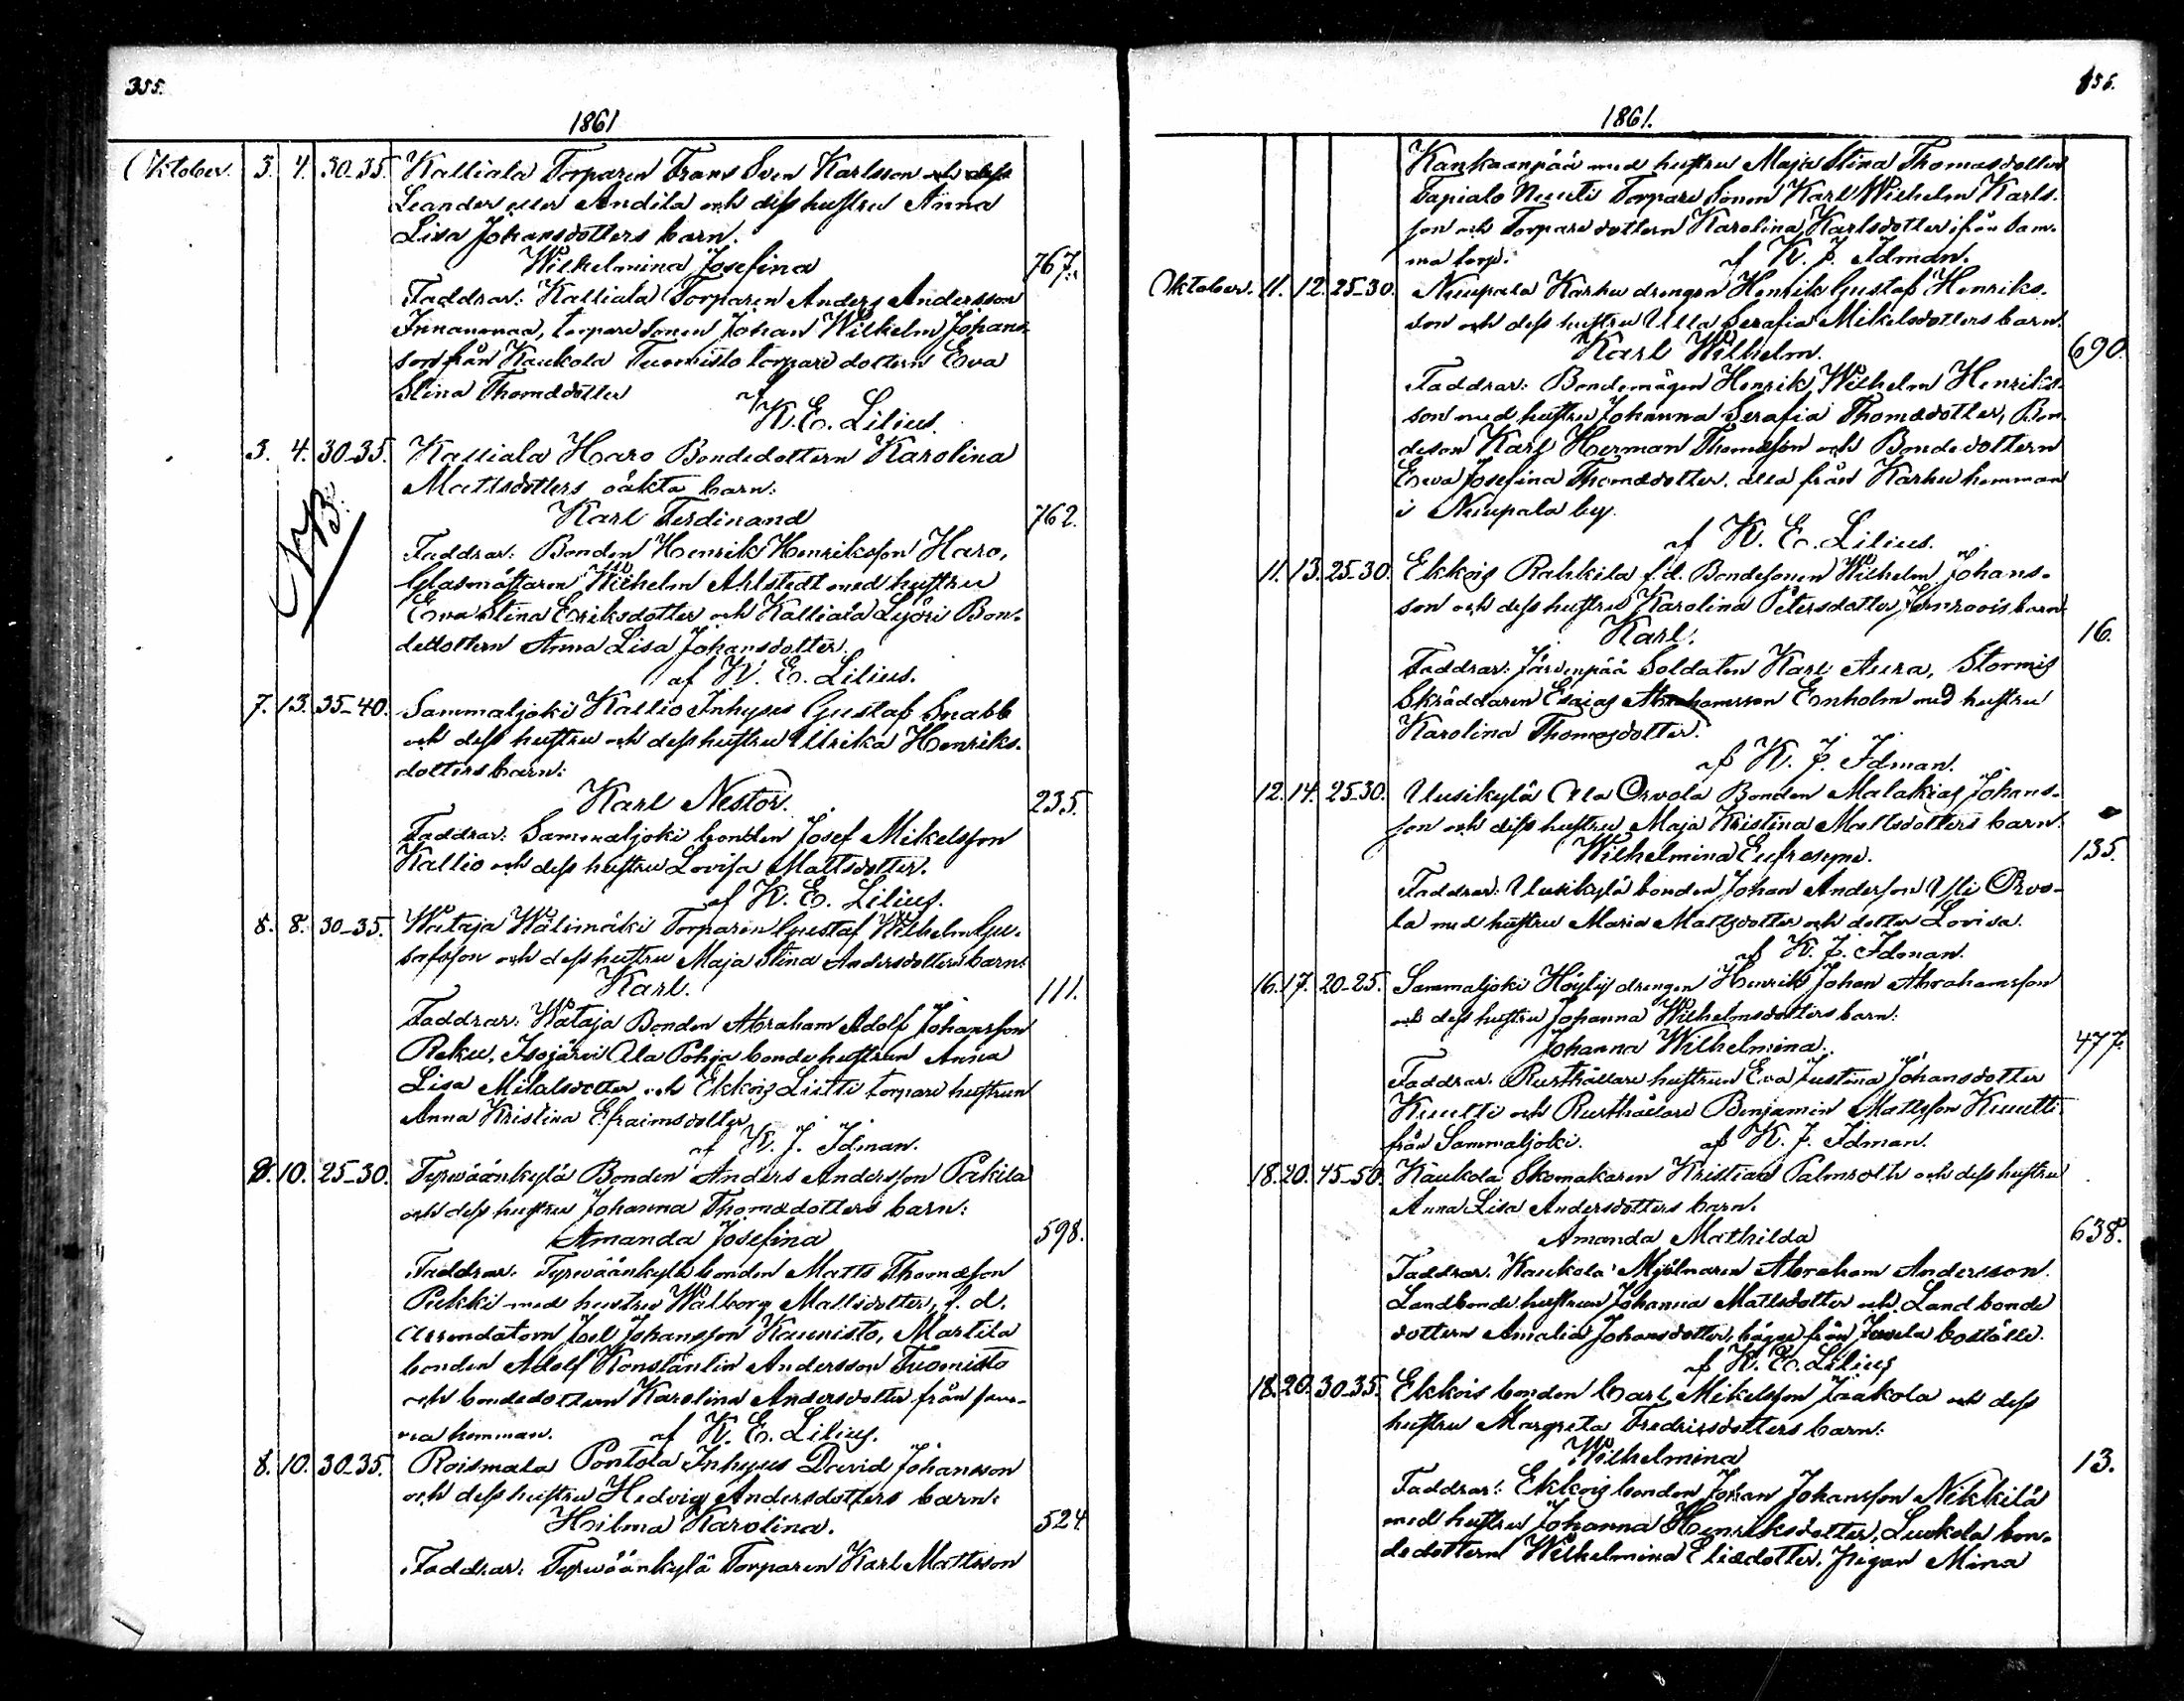 355.
1861
Oktober. 3. 4. 30-35. Kalliala Torparen Frans Sven Karlsson och dess
Leander eller Andila och dess hustru Anna
Lisa Johansdotters barn.
Wilhelmina Josefina 767.
Faddrar: Kalliala Torparen Anders Andersson
Innanmaa, torpare sonen Johan Wilhelm Johans-
son från Kaukola Tuomisto torpare dottern Eva
Stina Thomædotter af
K. E. Lilius.
3. 4. 30-35. Kalliala Haro Bondedottern Karolina
Mattsdotters oäkta barn:
NB. Karl Ferdinand 762.
Faddrar: Bonden Henrik Henriksson Haro,
Glasmästaren Wilhelm Ahlstedt med hustru
Eva Stina Eriksdotter och Kalliala Lyöri Bon-
dedottern Anna Lisa Johansdotter.
af K. E. Lilius.
7. 13. 35-40. Sammaljoki Kallio Inhyses Gustaf Snabb
och dess hustru och dess hustru Ulrika Henriks-
dotters barn:
Karl Nestor. 235.
Faddrar: Sammaljoki bonden Josef Mikelsson
Kallio och dess hustru Lovisa Mattsdotter.
af K. E. Lilius.
8. 8. 30-35. Wataja Wälimäki Torparen Gustaf Wilhelm Gu-
stafsson och dess hustru Maja Stina Andersdotters barn:
Karl. 111.
Faddrar: Wataja Bonden Abraham Adolf Johansson
Reku, Isojärvi Ala Pohja bonde hustrun Anna
Lisa Mikalsdotter och Ekkois Liitti torpare hustrun
Anna Kristina Efraimsdotter
af K. J. Idman.
8. 10. 25-30. Tyrwäänkylä Bonden Anders Andersson Pakila
och dess hustru Johanna Thomædotters barn:
Amanda Josefina 598.
Faddrar. Tyrwäänkylä bonden Matts Thomæson
Pukki med hustru Walborg Mattsdotter, f. d.
Arrendatorn Joel Johansson Kaunisto, Martila
bonden Adolf Konstantin Andersson Tuomisto
och bondedottern Karolina Andersdotter från sam-
ma hemman. af K. E. Lilius.
8. 10. 30-35. Roismala Pontola Inhyses David Johansson
och dess hustru Hedvig Andersdotters barn:
Hilma Karolina. 524
Faddrar: Tyrwäänkylä Torparen Karl Mattsson
356.
1861.
Kankaanpää med hustru Maja Stina Thomasdotter
Tapialo Nuuti Torpare Sonen Karl Wilhelm Karls-
son och Torpare dottern Karolina Karlsdotter ifrån sam-
ma torp. af K. J. Idman.
Oktober. 11. 12. 25-30. Nuupala Karhu drengen Henrik Gustaf Henriks-
son och dess hustru Ulla Serafia Mikelsdotters barn.
Karl Wilhelm. 690.
Faddrar: Bondemågen Henrik Wilhelm Henriks-
son med hustru Johanna Serafia Thomædotter, Bon-
deson Karl Herman Thomæson och Bondedottern
Eva Josefina Thomædotter. alla från Karhu hemman
i Nuupala by.
af K. E. Lilius.
11. 13. 25-30. Ekkois Rahkila f.d. Bondesonen Wilhelm Johans-
son och dess hustru Karolina Petersdotter barn
Karl. 16.
Faddrar: Järvenpää Soldaten Karl Aura, Stormis
Skräddaren Esaias Abrahamsson Enholm med hustru
Karolina Thomasdotter.
af K. J. Idman.
12. 14. 25-30. Uusikylä Ala Orvola Bonden Malakias Johans-
son och dess hustru Maja Kristina Mattsdotters barn:
Wilhelmina Eufrosyne. 135.
Faddrar: Uusikylä bonden Johan Andersson Yli Orvo-
la med hustru Maria Mattsdotter och dotter Lovisa.
af K. J. Idman.
16. 17. 20-25. Sammaljoki Höylij drengen Henrik Johan Abrahamsson
och dess hustru Johanna Wilhelmsdotters barn:
Johanna Wilhelmina. 477.
Faddrar. Rusthållare hustrun Eva Justina Johansdotter
Knuutti och Rusthållare Benjamin Mattsson Knuutti
från Sammaljoki. af K. J. Idman.
18. 20. 45-50. Kaukola Skomakaren Kristian Palmroth och dess hustru
Anna Lisa Andersdotters barn.
Amanda Mathilda 638.
Faddrar. Kaukola Mjölnaren Abraham Andersson.
Landbonde hustrun Johanna Mattsdotter och Landbonde
dottern Amalia Johansdotter, bägge från Juvela boställe.
af K. E. Lilius
18. 20. 30-35. Ekkois bonden Carl Mikelsson Jaakola och dess
hustru Margreta Fredricsdotters barn:
Wilhelmina 13.
Faddrar: Ekkois bonden Johan Johansson Nikkilä
med hustru Johanna Henriksdotter. Luukola bon-
dedottern Wilhelmina Eliædotter. Pigan Mina